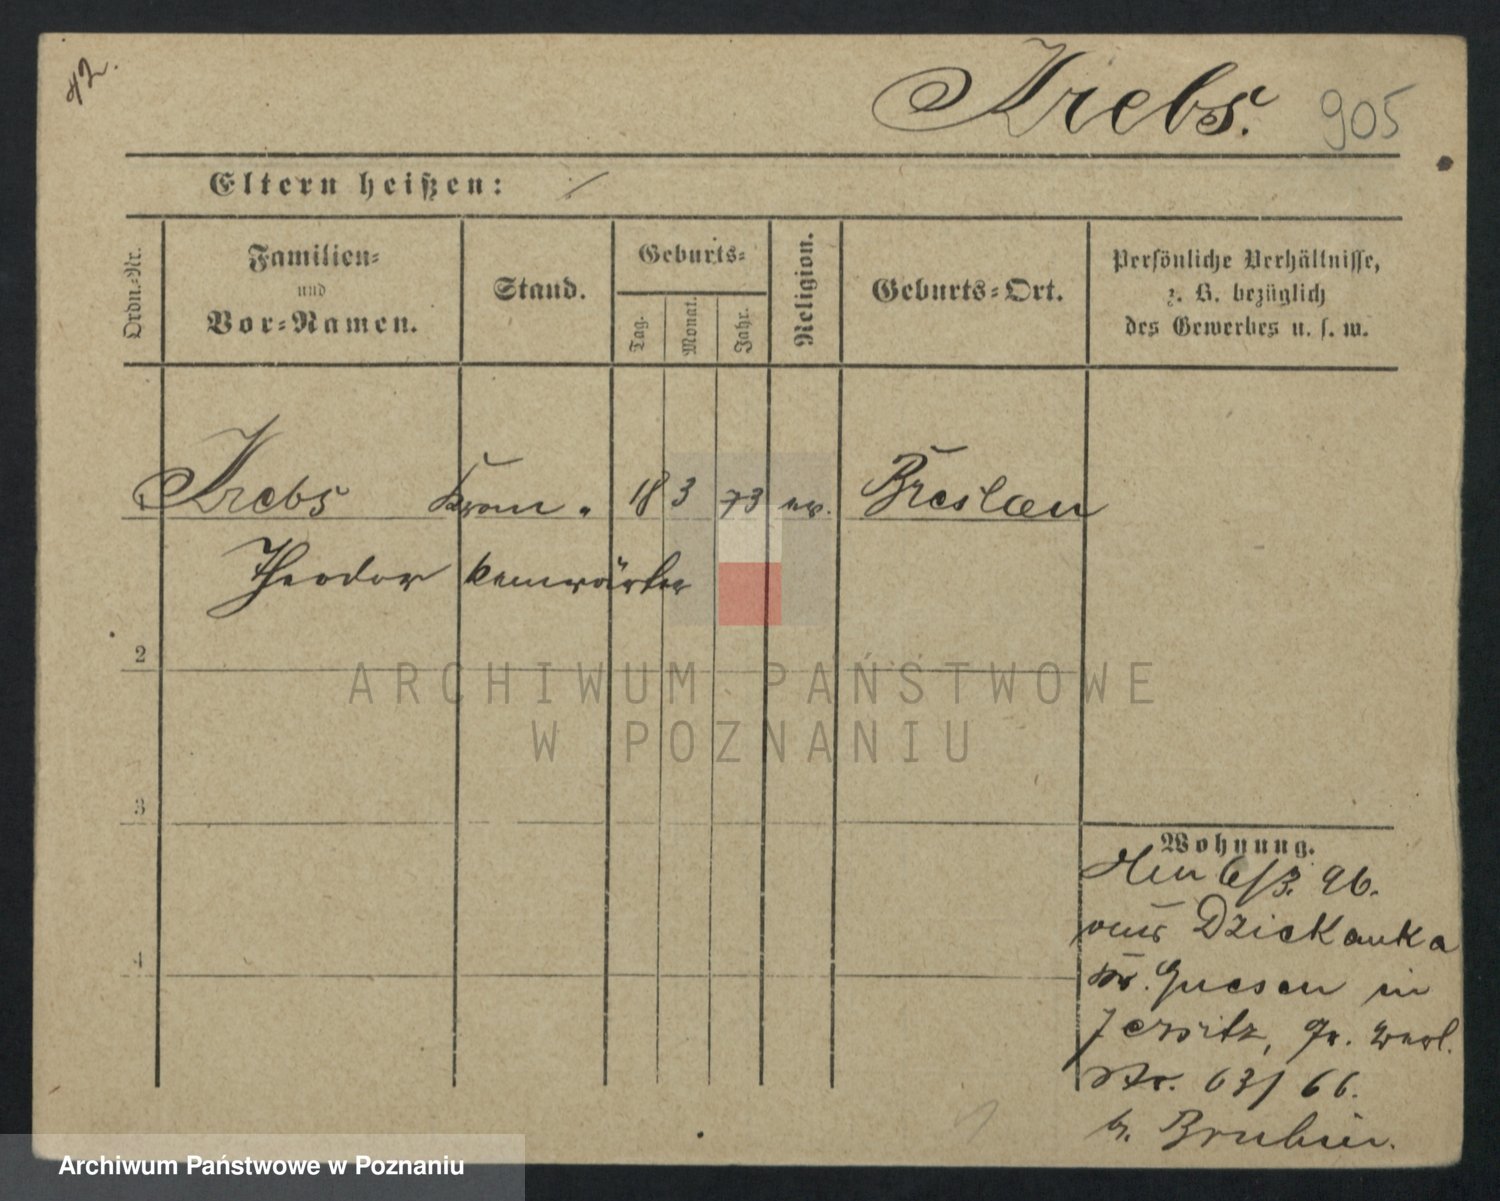 42.
Krebs. 905
Eltern heißen:
Ordn.-Nr.
Familien-
und
Vor-Namen.
Stand.
Geburts-
Tag.
Monat.
Jahr.
Religion.
Geburts-Ort.
Persönliche Verhältnisse,
z. B. bezüglich
des Gewerbes u. s. w.
Krebs Kran- 18 3 73 ev. Breslau
Theodor kenwärter
2
3
4
Wohnung.
96.
aus Dziekanka
Kr. Gnesen in
Jersitz, Gr. Berl.
Str. 63/66.
b.
ARCHIWUM PAŃSTWOWE
W POZNANIU
Archiwum Państwowe w Poznaniu